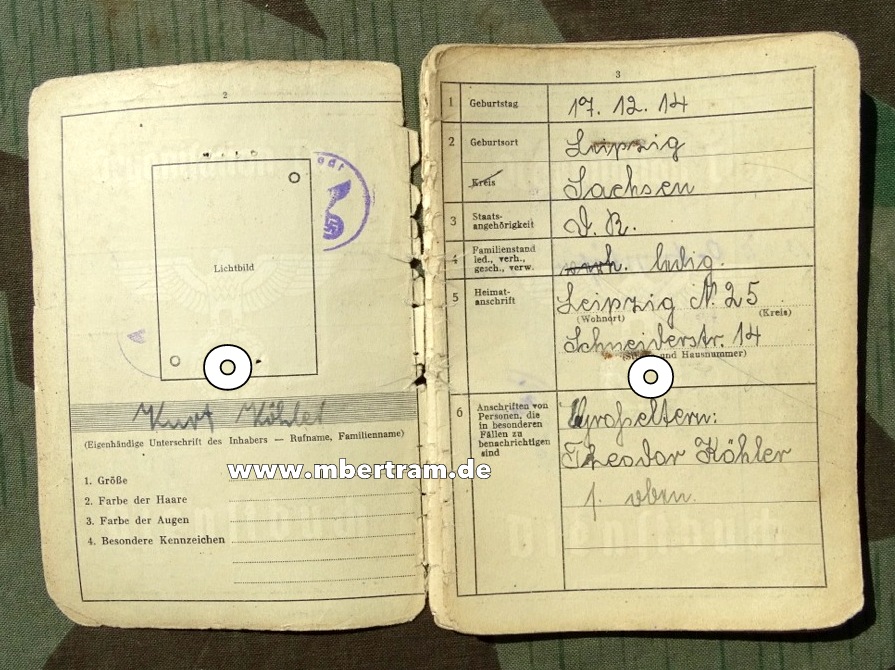 2
Lichtbild
Kurt Köhler
(Eigenhändige Unterschrift des Inhabers — Rufname, Familienname)
1. Größe
2. Farbe der Haare
3. Farbe der Augen
4. Besondere Kennzeichen
www.mbertram.de
3
1 Geburtstag 17. 12. 14
2 Geburtsort Leipzig
Kreis Sachsen
3 Staats-
angehörigkeit D. R.
4 Familienstand
led., verh., verh. ledig.
gesch., verw.
5 Heimat-
anschrift Leipzig N. 25
(Wohnort) (Kreis)
Schneiderstr. 14
und Hausnummer)
6 Anschriften von
Personen, die
in besonderen
Fällen zu
benachrichtigen
sind
Großeltern:
Theodor Köhler
s. oben.